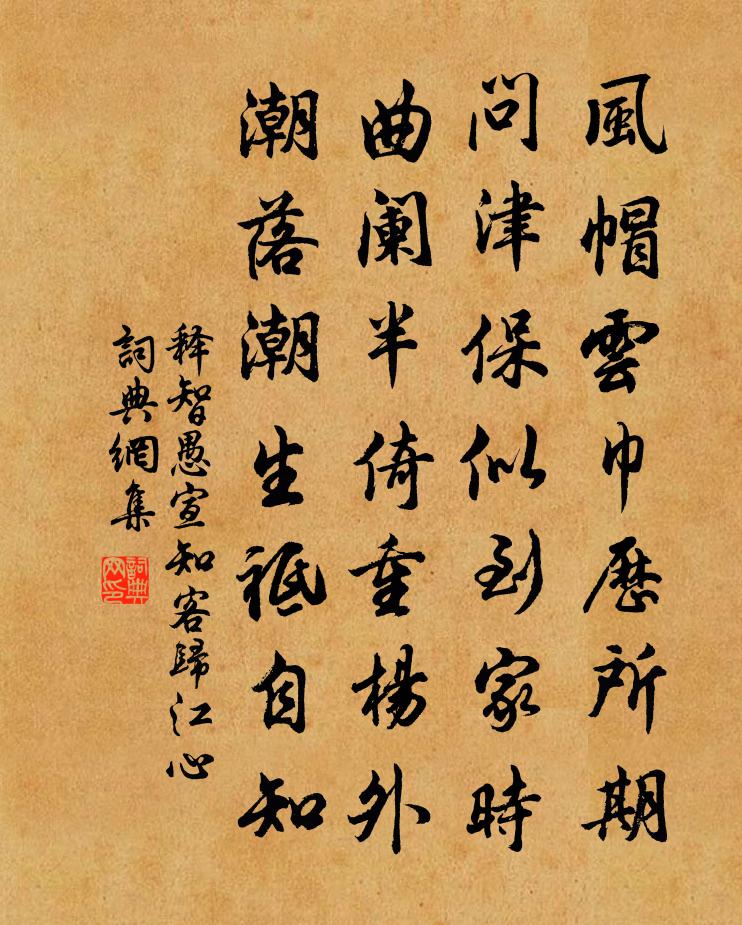 風帽雲巾歷所期
問津保似到家時
曲阑半倚垂楊外
潮落潮生祗自知
释智愚宣知客歸江心
詞典網集
詞典网印